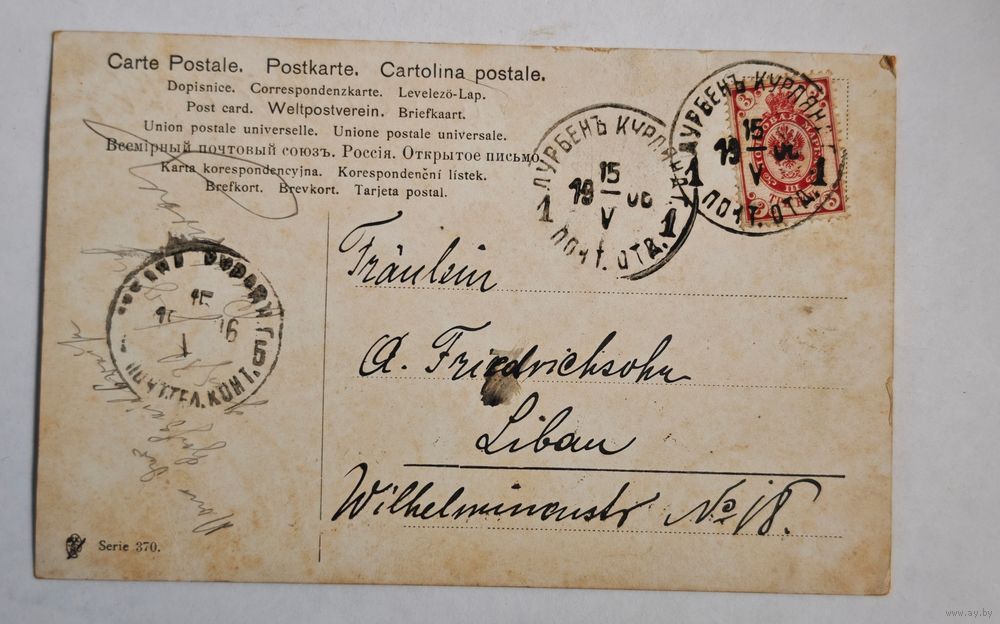 Carte Postale. Postkarte. Cartolina postale.
Dopisnice. Correspondenzkarte. Levelező-Lap.
Post card. Weltpostverein. Briefkaart.
Union postale universelle. Unione postale universale.
Всемірный почтовый союзъ. Россія. Открытое письмо.
Karta korespondencyjna. Korespondenční lístek.
Brefkort. Brevkort. Tarjeta postal.
ЛУРБЕНЪ КУРЛЯНД. Г.
15
19 06
V
1 1
ПОЧТ. ОТД.
ЛУРБЕНЪ КУРЛЯНД
15
19 06
V
1 1
ПОЧТ. ОТД.
3
Fräulein
A. Friedrichsohn
Libau
Wilhelminenstr No 18.
15
ПОЧТ.ТЕЛ.КОНТ.
Serie 370.
www.ay.by